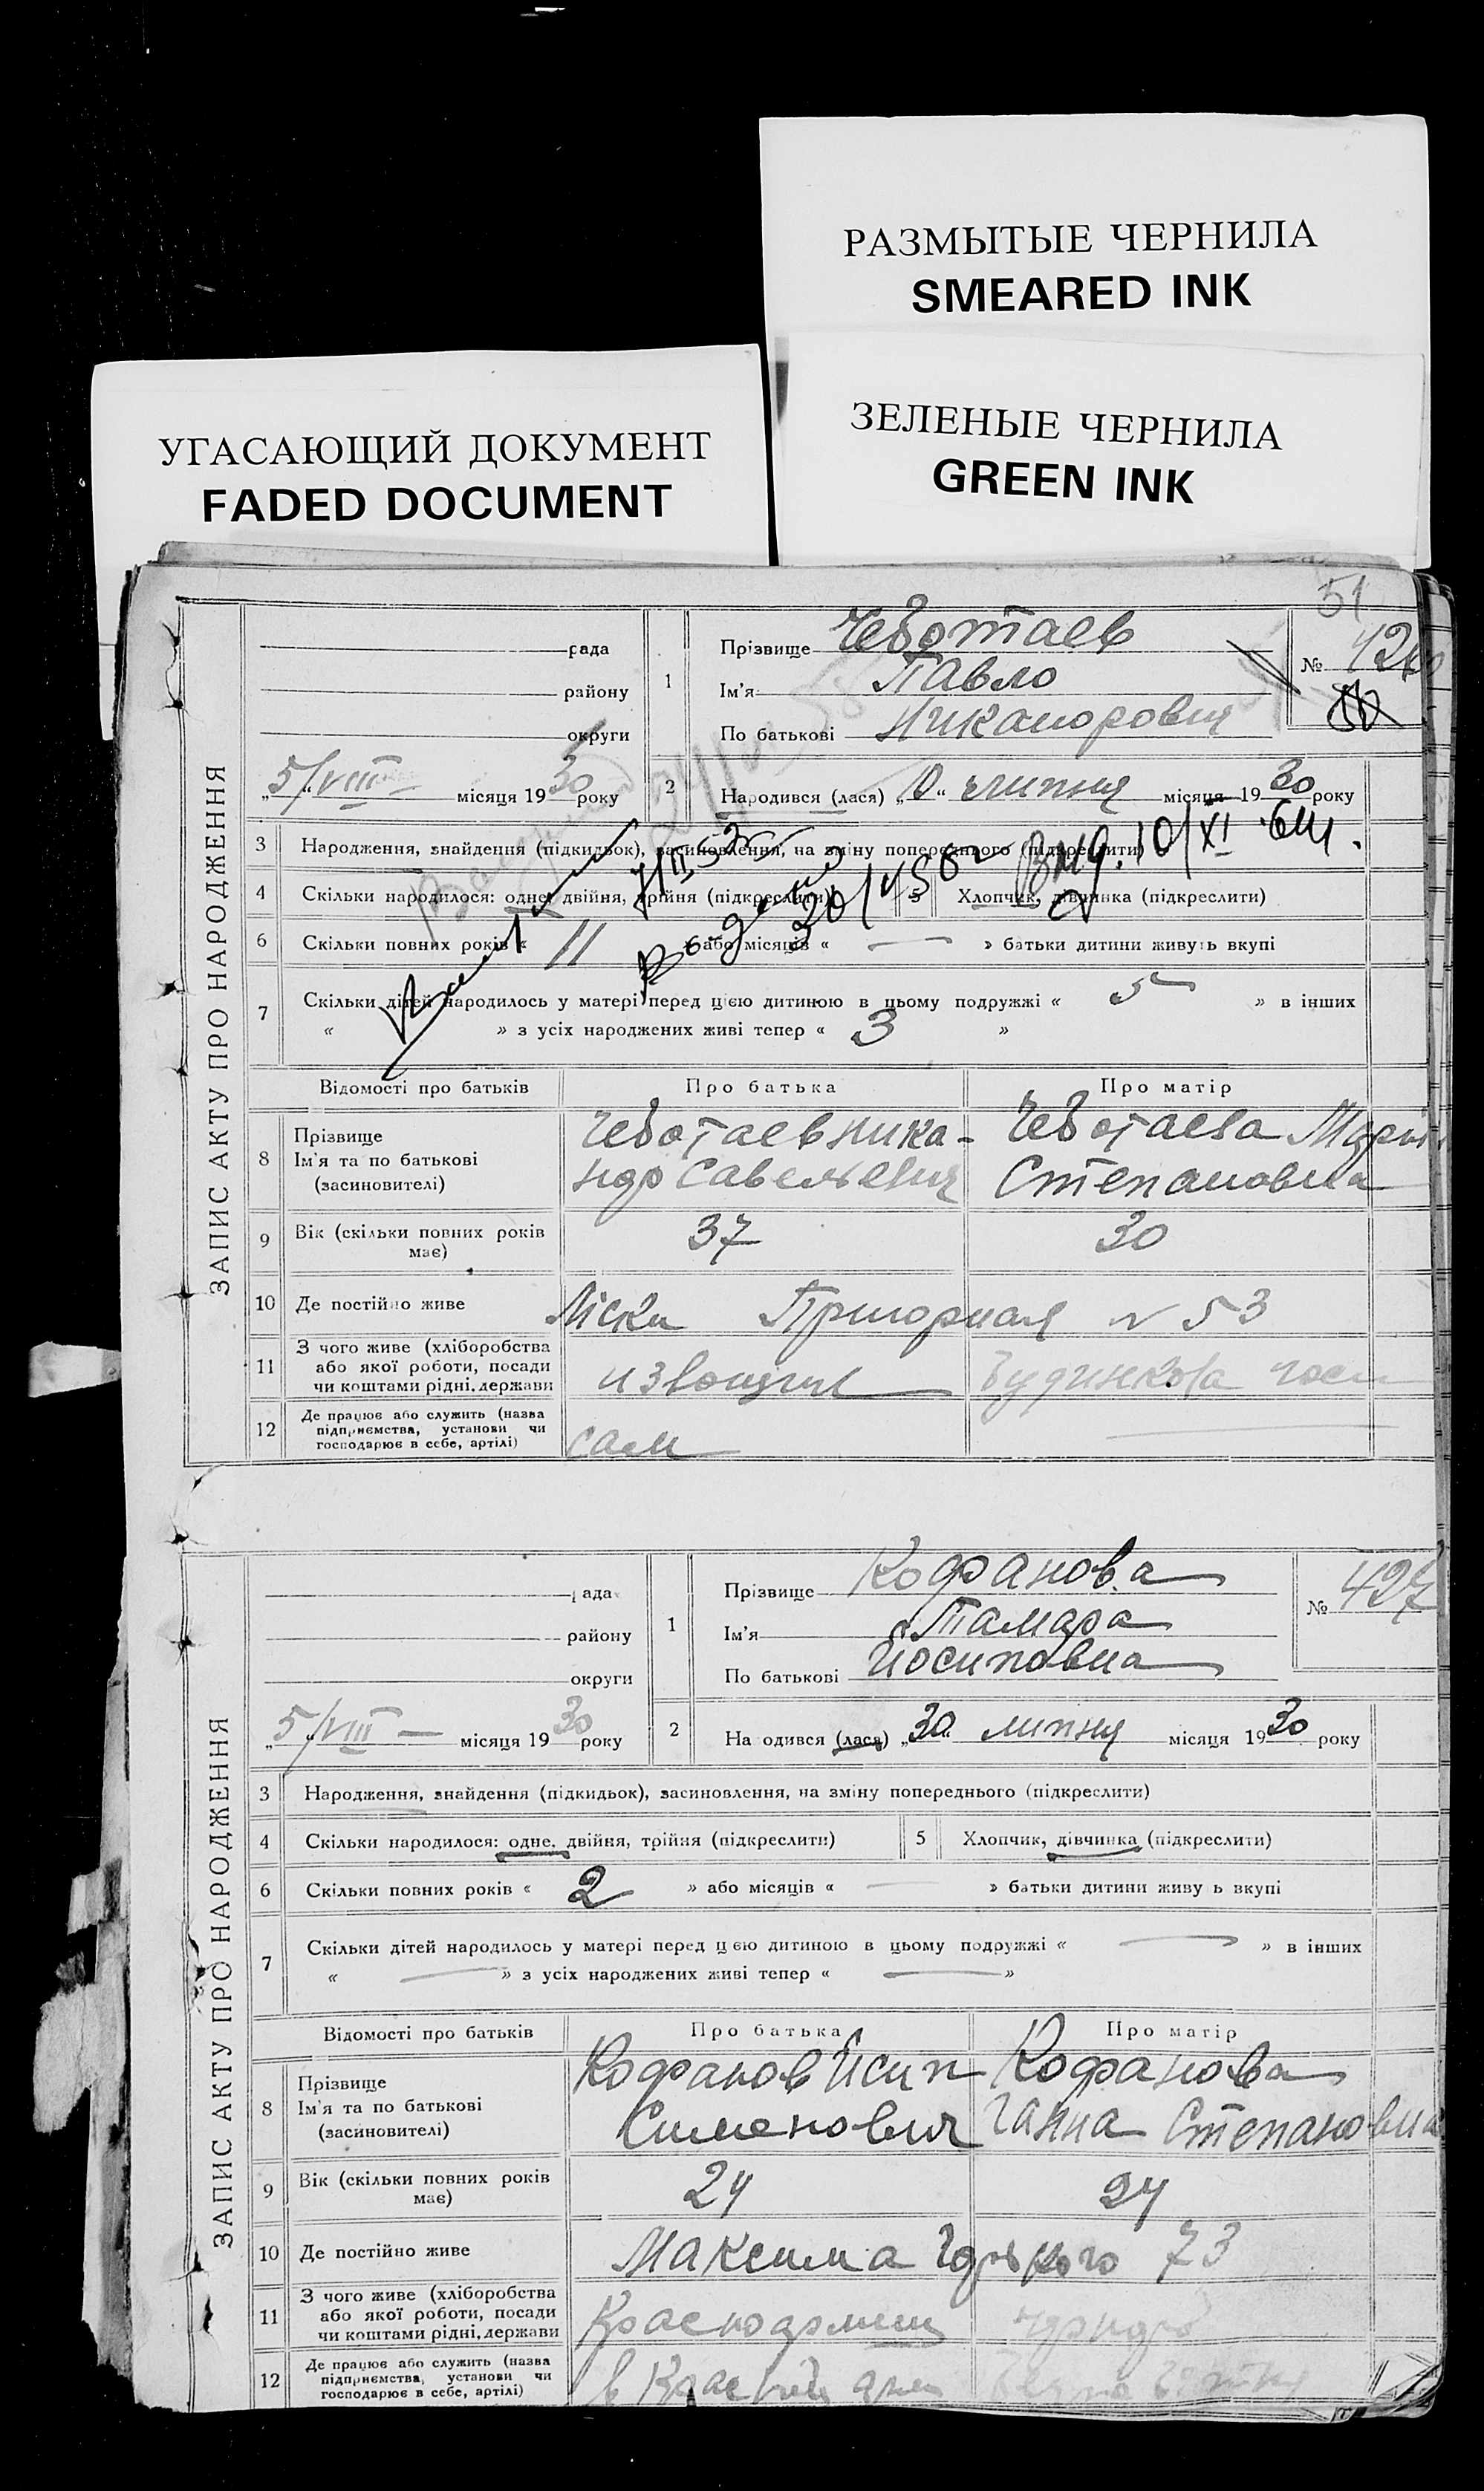 РАЗМЫТЫЕ ЧЕРНИЛА
SMEARED INK
ЗЕЛЕНЫЕ ЧЕРНИЛА
GREEN INK
УГАСАЮЩИЙ ДОКУМЕНТ
FADED DOCUMENT
51
ЗАПИС АКТУ ПРО НАРОДЖЕННЯ
рада
району
округи
„5/VIII“ місяця 1930 року
1 Прізвище Чеботаев
Ім'я Павло
По батькові Никанорович
№ 426
2 Народився (лася) „10“ липня місяця 1930 року
3 Народження, знайдення (підкидьок), засиновлення, на зміну попереднього (підкреслити)
4 Скільки народилося: одне, двійня, трійня (підкреслити) 5 Хлопчик, дівчинка (підкреслити)
6 Скільки повних років « 11 » або місяців « — » батьки дитини живуть вкупі
7 Скільки дітей народилось у матері перед цією дитиною в цьому подружжі « 5 » в інших
« » з усіх народжених живі тепер « 3 »
Відомості про батьків Про батька Про матір
8 Прізвище Ім'я та по батькові (засиновителі)
ЧеботаевНика-
ндр Савельевич
Чеботаева Мария
Степановна
9 Вік (скільки повних років має) 37 30
10 Де постійно живе Ліски Пригорная № 53
11 З чого живе (хліборобства або якої роботи, посади чи коштами рідні, держави извощик
12 Де працює або служить (назва підприємства, установи чи господарює в себе, артілі) сам
ЗАПИС АКТУ ПРО НАРОДЖЕННЯ
рада
району
округи
„5/VIII“ — місяця 1930 року
1 Прізвище Кофанова
Ім'я Тамара
По батькові Йосиповна
№ 427
2 На одився (лася) „30“ липня місяця 1930 року
3 Народження, знайдення (підкидьок), засиновлення, на зміну попереднього (підкреслити)
4 Скільки народилося: одне, двійня, трійня (підкреслити) 5 Хлопчик, дівчинка (підкреслити)
6 Скільки повних років « 2 » або місяців « — » батьки дитини живу ь вкупі
7 Скільки дітей народилось у матері перед цією дитиною в цьому подружжі « — » в інших
« — » з усіх народжених живі тепер « — »
Відомості про батьків Про батька Про матір
8 Прізвище Ім'я та по батькові (засиновителі)
Кофанов Йсип
Сименович
Кофанова
Ганна Степановна
9 Вік (скільки повних років має) 24 24
10 Де постійно живе Максима Горького 73
11 З чого живе (хліборобства або якої роботи, посади чи коштами рідні, держави
12 Де працює або служить (назва підприємства, установи чи господарює в себе, артілі)